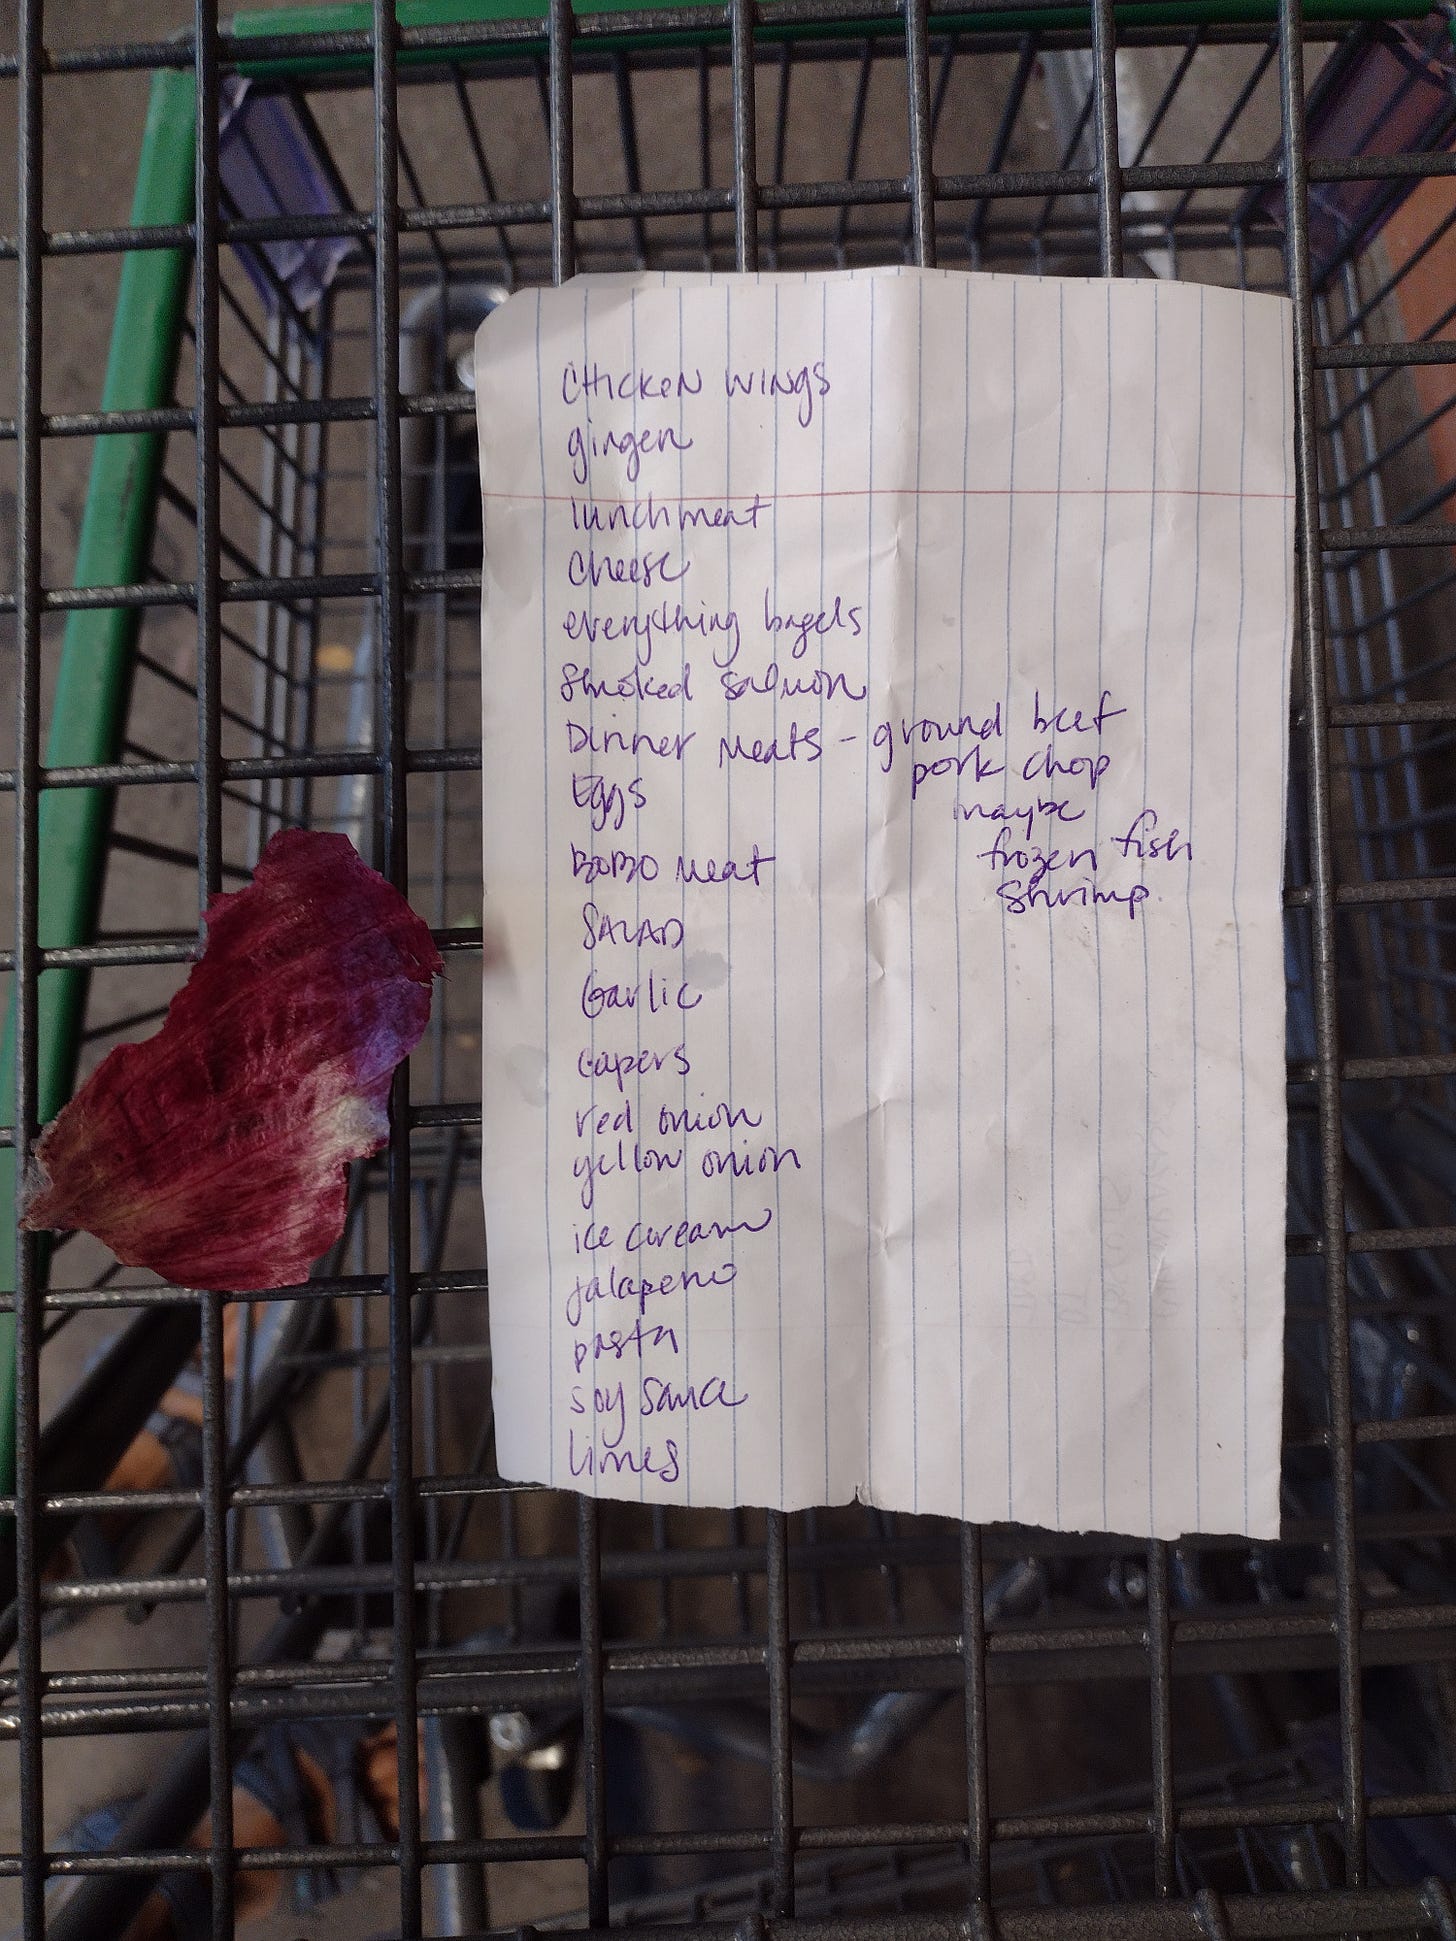 CHicKeN WiNgS
ginger
lunchmeat
Cheese
everything bagels
Smoked salmon
Dinner Meats - ground beef
pork chop
maybe
Eggs
frozen fish
BOBO Meat
Shrimp
SALAD
Garlic
capers
red onion
yellow onion
ice cream
jalapeno
pasta
soy sauce
limes